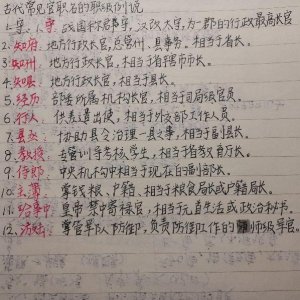 古代常见官职名的职级例说
1. 守：战国称郡守，汉改太守，为一郡的行政最高长官
2. 知府：地方行政长官，总管州、县事务。相当于省长。
3. 知州：地方行政长官，相当于省辖市长。
4. 知县：地方行政长官，相当于县长。
5. 经历：部委所属机构长官，相当司局级官员。
6. 行人：供差遣出使，相当于外交部工作人员。
7. 县丞：协助县令治理一县之事，相当于副县长。
8. 教授：专管训导考核学生，相当于省教育厅长。
9. 侍郎：中央机构中相当于现在的副部长。
10. 主簿：掌钱粮、户籍，相当于粮食局长或户籍局长。
11. 给事中：皇帝禁中寄禄官，相当于元首生活或政治秘书。
12. 防御：掌管军队防御，负责防御工作的师级军官。